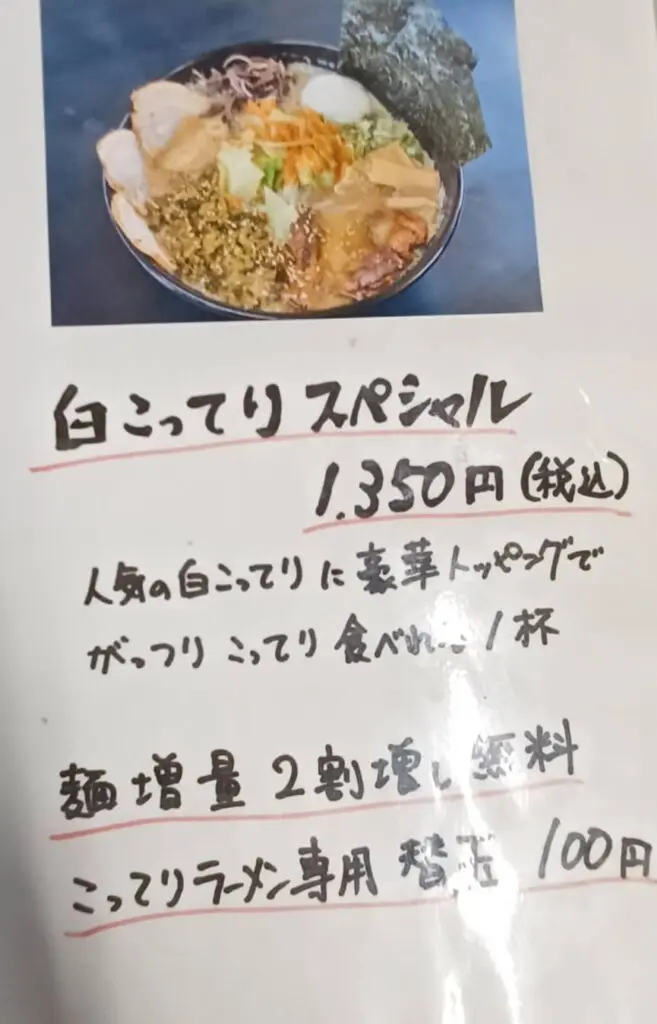 白こってりスペシャル
1.350円(税込)
人気の白こってりに豪華トッピングで
がっつりこってり食べれる1杯
麺増量 2割増し無料
こってりラーメン専用 替玉 100円